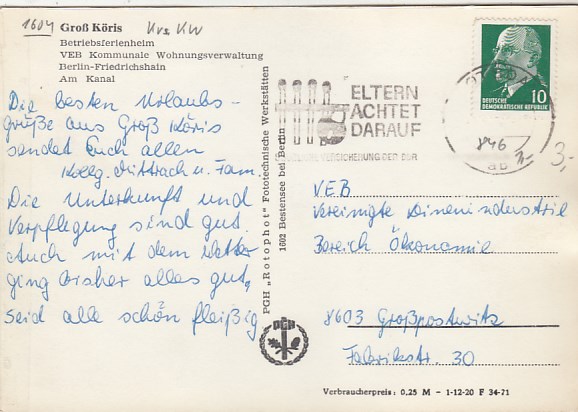 1604
Kr. KW
Groß Köris
Betriebsferienheim
VEB Kommunale Wohnungsverwaltung
Berlin-Friedrichshain
Am Kanal
Die besten Urlaubs-
grüße aus Groß Köris
sendet Euch allen
Kollg. Dittrach u. Fam.
Die Unterkunft und
Verpflegung sind gut.
Auch mit dem Wetter
ging bisher alles gut,
Seid alle schön fleißig
PGH „Rotophot" Fototechnische Werkstätten
1602 Bestensee bei Berlin
PGH
ELTERN
ACHTET
DARAUF
VERSICHERUNG DER DDR
DEUTSCHE
DEMOKRATISCHE REPUBLIK
10
846
3,-
3,-
VEB
Vereinigte
Bereich Ökonomie
8603 Großpostwitz
Fabrikstr. 30
Verbraucherpreis: 0,25 M - 1-12-20 F 34-71